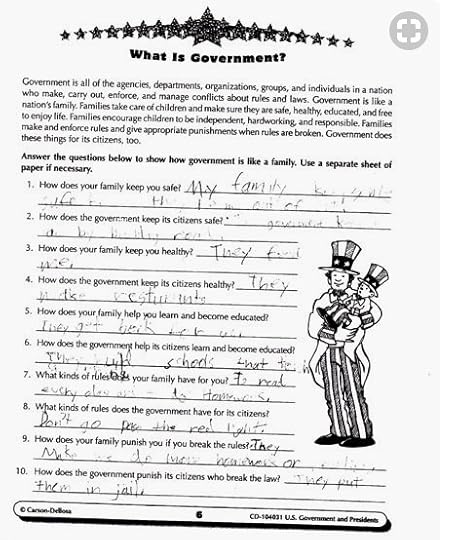 What Is Government?
Government is all of the agencies, departments, organizations, groups, and individuals in a nation
who make, carry out, enforce, and manage conflicts about rules and laws. Government is like a
nation's family. Families take care of children and make sure they are safe, healthy, educated, and free
to enjoy life. Families encourage children to be independent, hardworking, and responsible. Families
make and enforce rules and give appropriate punishments when rules are broken. Government does
these things for its citizens, too.
Answer the questions below to show how government is like a family. Use a separate sheet of
paper if necessary.
1. How does your family keep you safe? My family
2. How does the government keep its citizens safe?
by
3. How does your family keep you healthy? They
me.
4. How does the government keep its citizens healthy? They
5. How does your family help you learn and become educated?
They get
6. How does the government help its citizens learn and become educated?
schools that
7. What kinds of rules does your family have for you? To read
every
8. What kinds of rules does the government have for its citizens?
Don't go the red light.
9. How does your family punish you if you break the rules? They
Make me do more homework or
10. How does the government punish its citizens who break the law? They put
them in jail.
© Carson-Dellosa 6 CD-104031 U.S. Government and Presidents